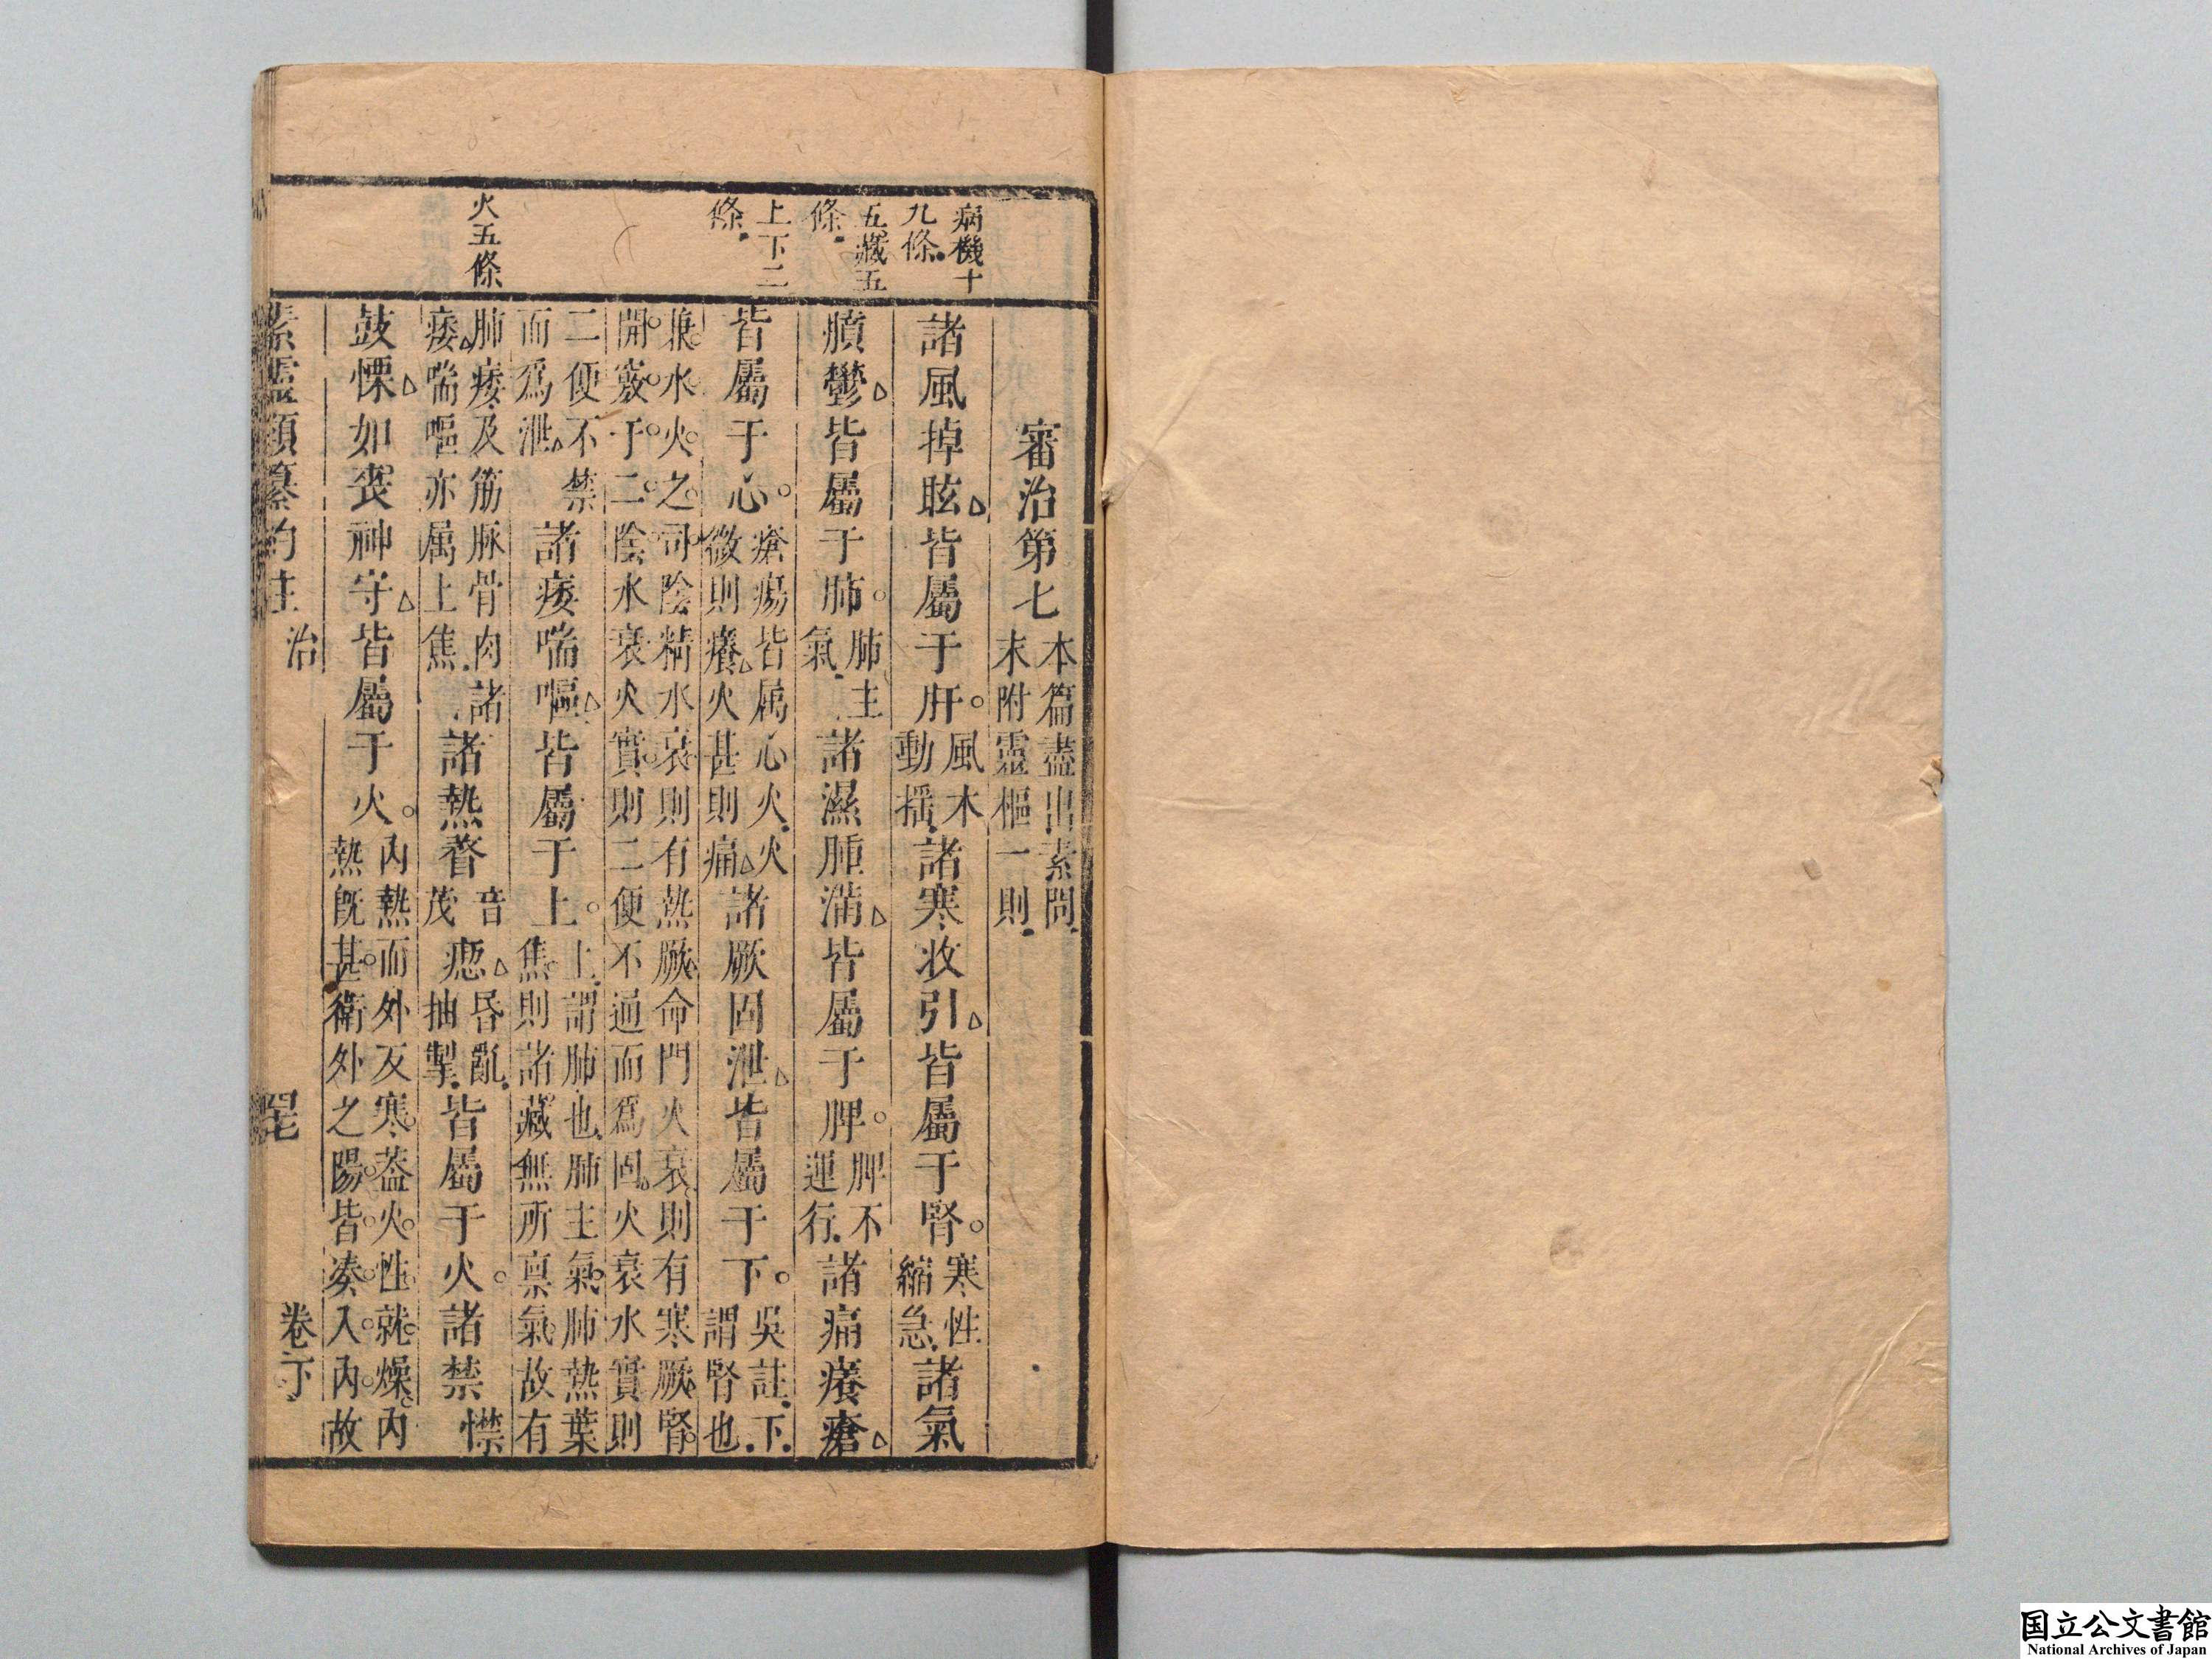 病機十
九條
五藏五
條
上下二
條
火五條
審治第七 本篇盡出素問
末附靈樞一則
諸風掉眩皆屬于肝 風木
動揺 諸寒收引皆屬于腎 寒性
縮急 諸氣
膹鬱皆屬于肺 肺主
氣 諸濕腫滿皆屬于脾 脾不
運行 諸痛癢瘡
皆屬于心 瘡瘍皆属心火火
微則癢火甚則痛 諸厥固泄皆屬于下 吳註下
謂腎也
兼水火之司陰精水衰則有熱厥命門火衰則有寒厥腎
開竅于二陰水衰火實則二便不通而爲固火衰水實則
二便不禁
而爲泄 諸痿喘嘔皆屬于上 上謂肺也肺主氣肺熱葉
焦則諸藏無所禀氣故有
肺痿及筋脉骨肉諸
痿喘嘔亦属上焦 諸熱瞀 音
茂 瘛 昏亂
抽掣 皆屬于火諸禁
鼓慄如喪神守皆屬于火 內熱而外反寒葢火性就燥內
熱既甚衛外之陽皆凑入內故
素靈類纂約註 治 卷下
国立公文書館
National Archives of Japan